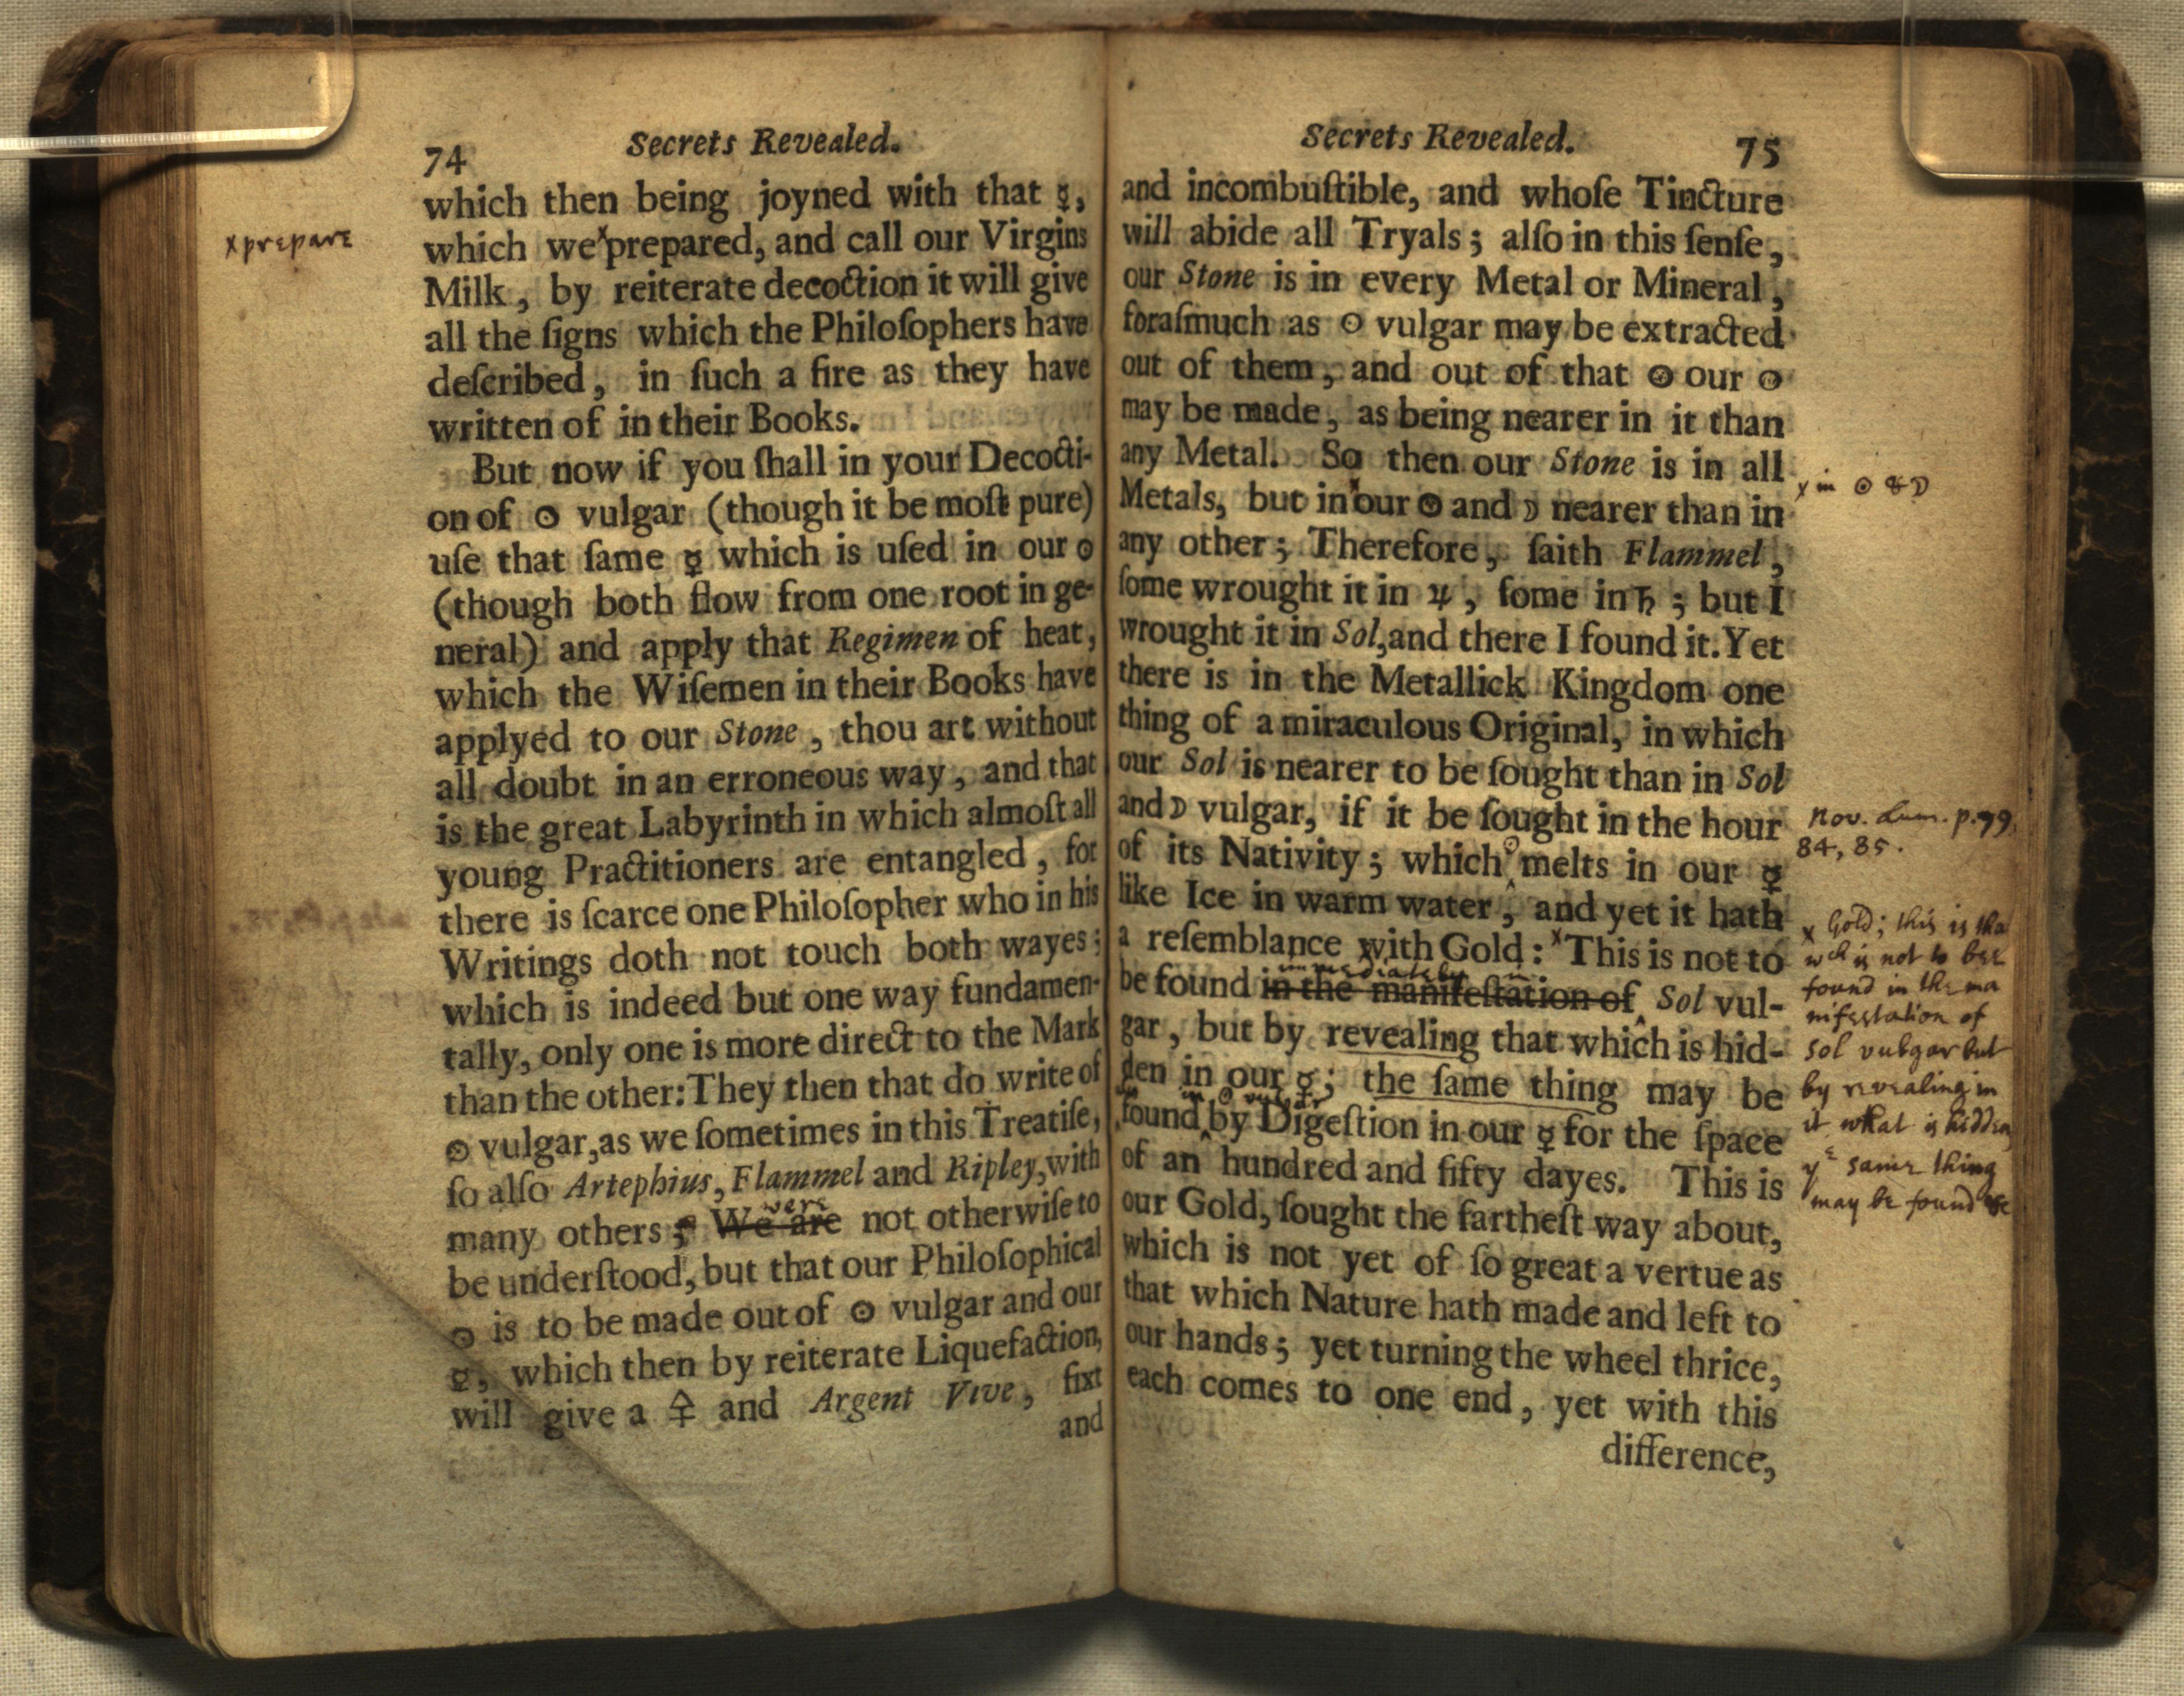 74 Secrets Revealed.
which then being joyned with that ☿,
which we ˣprepared, and call our Virgins
Milk, by reiterate decoction it will give
all the ſigns which the Philoſophers have
deſcribed, in ſuch a fire as they have
written of in their Books.
But now if you ſhall in your Decocti-
on of ☉ vulgar (though it be moſt pure)
uſe that ſame ☿ which is uſed in our ☉
(though both flow from one root in ge-
neral) and apply that Regimen of heat,
which the Wiſemen in their Books have
applyed to our Stone, thou art without
all doubt in an erroneous way, and that
is the great Labyrinth in which almoſt all
young Practitioners are entangled, for
there is ſcarce one Philoſopher who in his
Writings doth not touch both wayes;
which is indeed but one way fundamen-
tally, only one is more direct to the Mark
than the other: They then that do write of
☉ vulgar, as we ſometimes in this Treatiſe,
ſo alſo Artephius, Flammel and Ripley, with
many others; We are not otherwiſe to
be underſtood, but that our Philoſophical
☉ is to be made out of ☉ vulgar and our
☿, which then by reiterate Liquefaction,
will give a 🜍 and Argent Vive, fixt
and
x prepare
Secrets Revealed. 75
and incombuſtible, and whoſe Tincture
will abide all Tryals; alſo in this ſenſe,
our Stone is in every Metal or Mineral,
foraſmuch as ☉ vulgar may be extracted
out of them, and out of that ☉ our ☉
may be made, as being nearer in it than
any Metal. So then our Stone is in all
Metals, but in ˣour ☉ and ☽ nearer than in
any other; Therefore, ſaith Flammel,
ſome wrought it in ♃, ſome in ♄; but I
wrought it in Sol, and there I found it. Yet
there is in the Metallick Kingdom one
thing of a miraculous Original, in which
our Sol is nearer to be ſought than in Sol
and ☽ vulgar, if it be ſought in the hour
of its Nativity; which melts in our ☿
like Ice in warm water, and yet it hath
a reſemblance with Gold: ˣThis is not to
immediately in
be found in the manifeſtation of Sol vul-
gar, but by revealing that which is hid-
den in our ☿; the ſame thing may be
in ☉ vulgar
found by Digeſtion in our ☿ for the ſpace
of an hundred and fifty dayes. This is
our Gold, ſought the fartheſt way about,
which is not yet of ſo great a vertue as
that which Nature hath made and left to
our hands; yet turning the wheel thrice,
each comes to one end, yet with this
difference,
x in ☉ & ☽
Nov. Lum. p. 79,
84, 85.
x Gold; this is tha
wch is not to bee
found in the ma
nifestation of
Sol vulgar but
by revealing in
it what is hidden
ye same thing
may be found &c